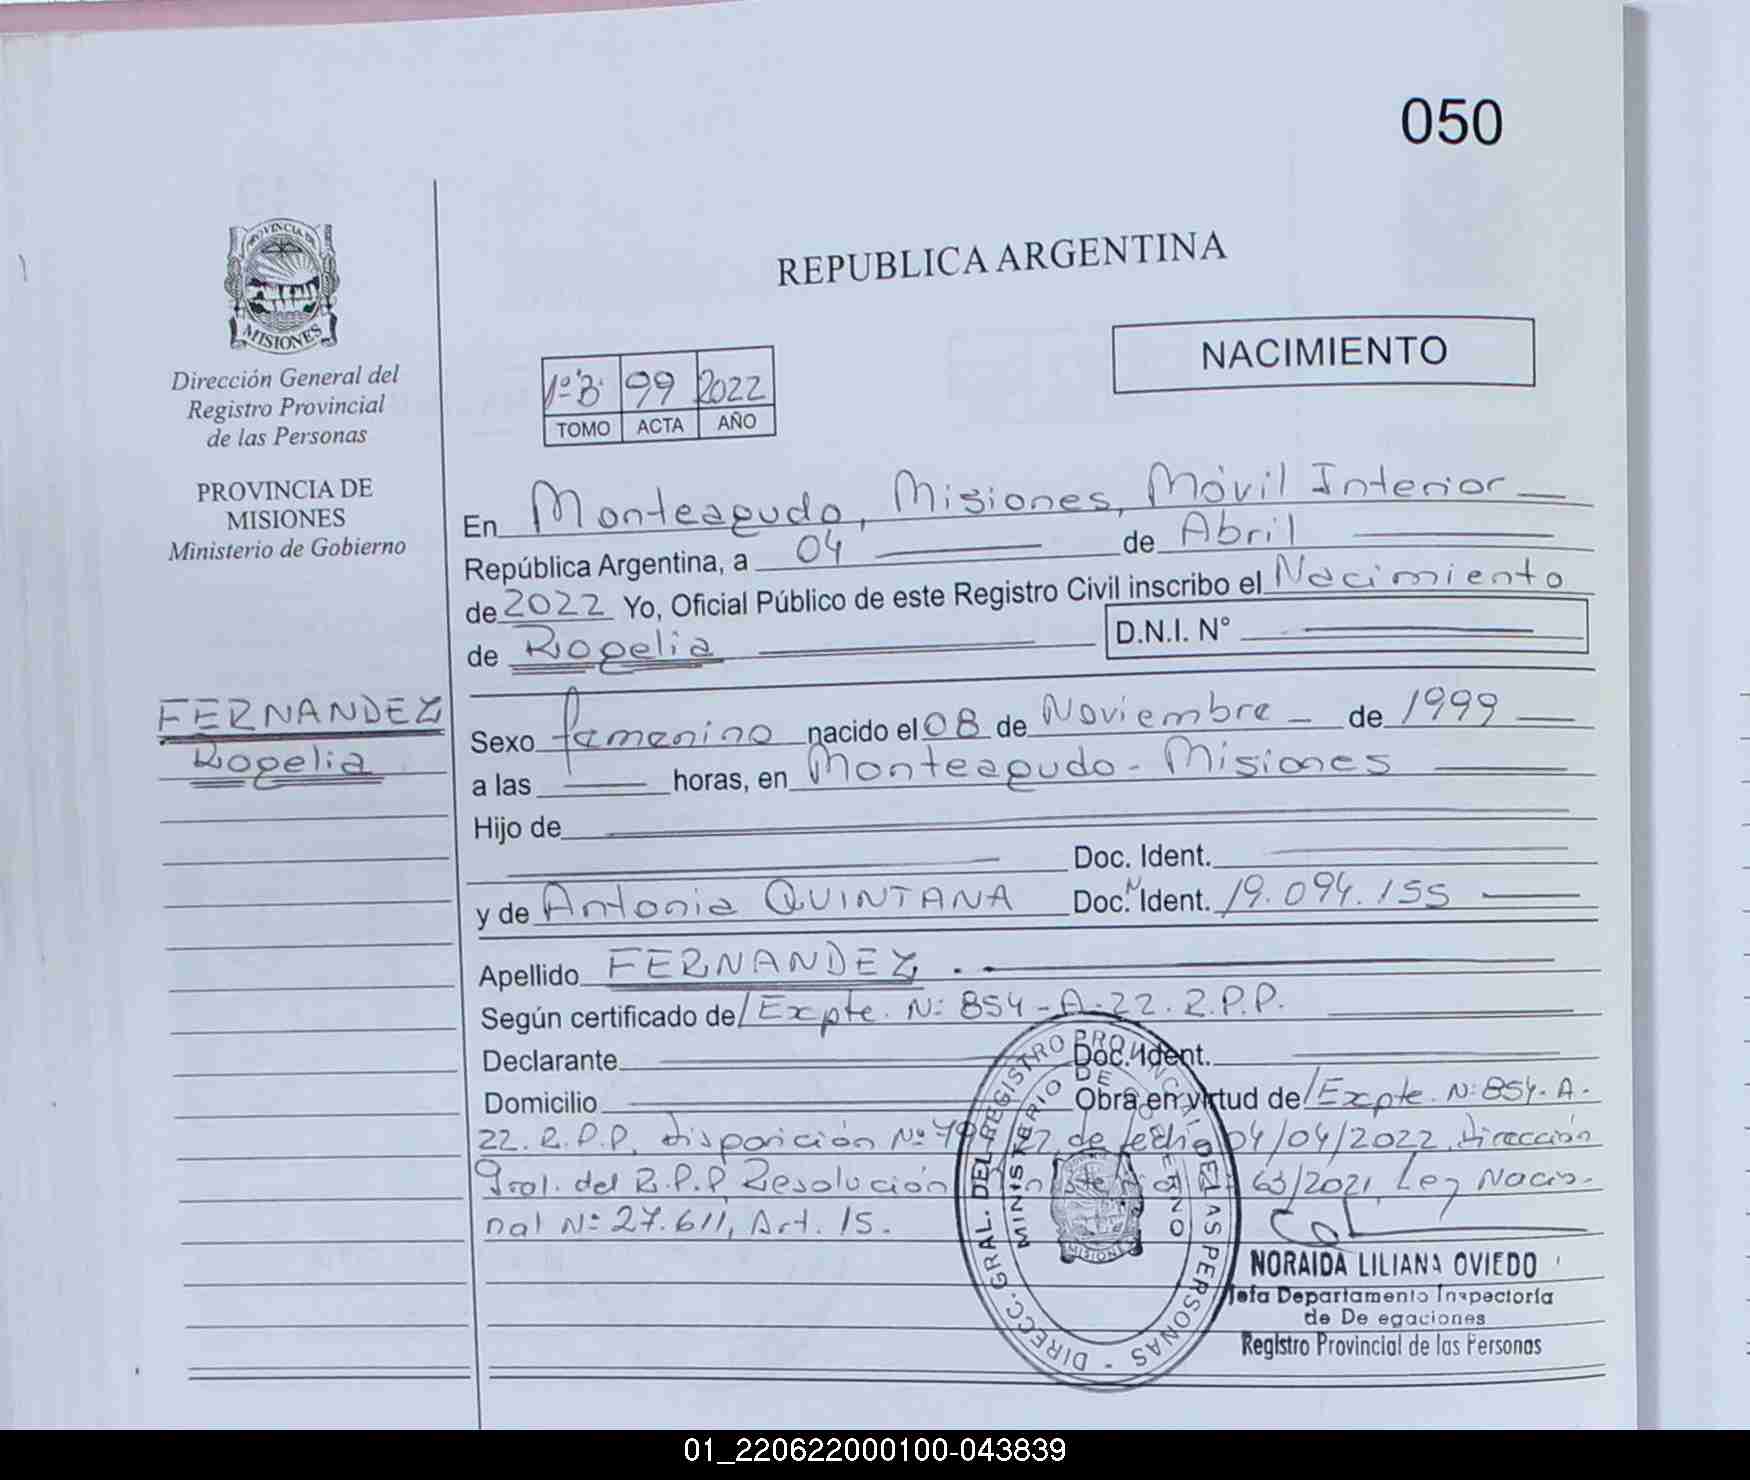 050
PROVINCIA DE
MISIONES
Dirección General del
Registro Provincial
de las Personas
PROVINCIA DE
MISIONES
Ministerio de Gobierno
FERNANDEZ
Rogelia
REPUBLICA ARGENTINA
NACIMIENTO
1º B 99 2022
TOMO ACTA AÑO
En Monteagudo, Misiones, Móvil Interior
República Argentina, a 04 de Abril
de 2022 Yo, Oficial Público de este Registro Civil inscribo el Nacimiento
de Rogelia D.N.I. N°
Sexo femenino nacido el 08 de Noviembre de 1999
a las horas, en Monteagudo - Misiones
Hijo de
Doc. Ident.
y de Antonia QUINTANA Doc. N Ident. 19.094.155
Apellido FERNANDEZ
Según certificado de/Expte. Nº 854-A-22. R.P.P.
Declarante Doc. Ident.
Domicilio Obra en virtud de/Expte. Nº 854-A-
22. R.P.P. Disposición Nº de fecha 04/04/2022, Dirección
Gral. del R.P.P. Resolución 63/2021, Ley Nacio-
nal Nº 27.611, Art. 15.
DIRECC. GRAL. DEL REGISTRO PROVINCIAL DE LAS PERSONAS
MINISTERIO DE GOBIERNO
MISIONES
NORAIDA LILIANA OVIEDO
Jefa Departamento Inspectoría
de De egaciones
Registro Provincial de las Personas
01_220622000100-043839